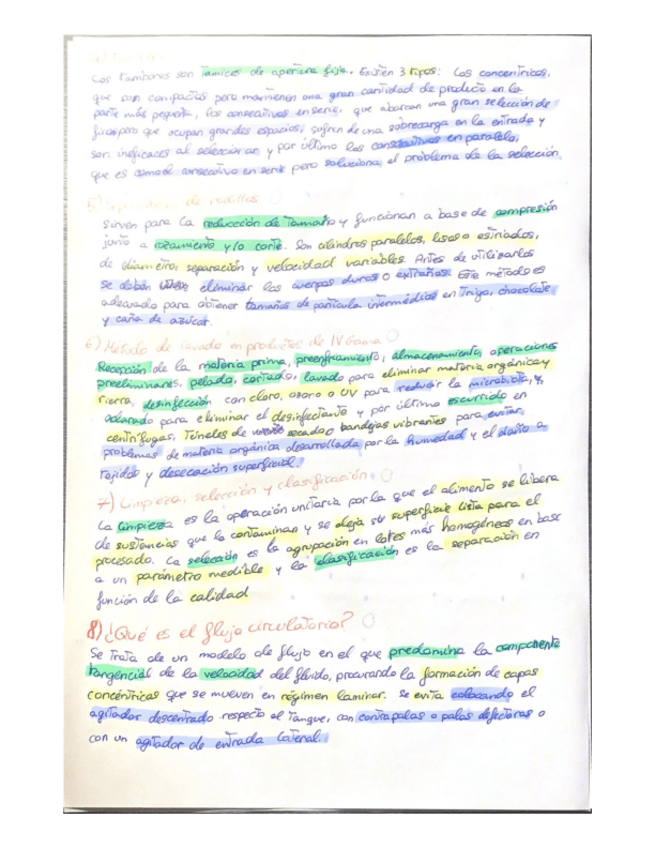 Los tambores son tamices de apertura fija. Existen 3 tipos: Los concéntricos,
que son compactos pero mantienen una gran cantidad de producto en la
parte más pequeña, los consecutivos en serie, que abarcan una gran selección de
pero que ocupan grandes espacios, sufren de una sobrecarga en la entrada y
son ineficaces al seleccionar y por último los consecutivos en paralelo,
que es como el consecutivo en serie pero soluciona el problema de la selección.
5) de rodillos
Sirven para la reducción de tamaño y funcionan a base de compresión
junto a rozamiento y/o corte. Son cilindros paralelos, lisos o estriados,
de diametro, separación y velocidad variables. Antes de utilizarlos
se deben eliminar los cuerpos duros o extraños. Este método es
adecuado para obtener tamaños de partícula intermedios en trigo, chocolate
y caña de azúcar.
6) Método de lavado en productos de IV Gama
Recepción de la materia prima, preenfriamiento, almacenamiento, operaciones
preeliminares, pelado, cortado, lavado para eliminar materia orgánica y
tierra, desinfección con cloro, ozono o UV para reducir la microbiota,
aclarado para eliminar el desinfectante y por último escurrido en
centrífugas, túneles de secado o bandejas vibrantes para evitar
problemas de materia orgánica desarrollada por la humedad y el daño a
tejidos y desecación superficial.
7) Limpieza, selección y clasificación
La limpieza es la operación unitaria por la que el alimento se libera
de sustancias que lo contaminan y se deja su superficie lista para el
procesado. La selección es la agrupación en lotes más homogéneos en base
a un parámetro medible y la clasificación es la separación en
función de la calidad
8) ¿Qué es el flujo circulatorio?
Se trata de un modelo de flujo en el que predomina la componente
tangencial de la velocidad del fluido, procurando la formación de capas
concéntricas que se mueven en régimen laminar. Se evita colocando el
agitador descentrado respecto al tanque, con contrapalas o palas deflectoras o
con un agitador de entrada lateral.